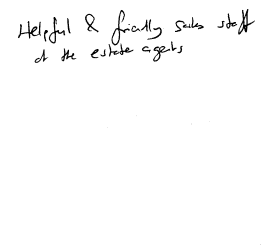 Helpful & friendly sales staff
at the estate agents